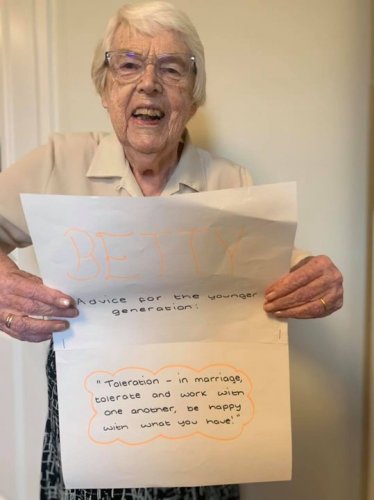 BETTY
Advice for the younger
generation:
"Toleration - in marriage,
tolerate and work with
one another, be happy
with what you have!"